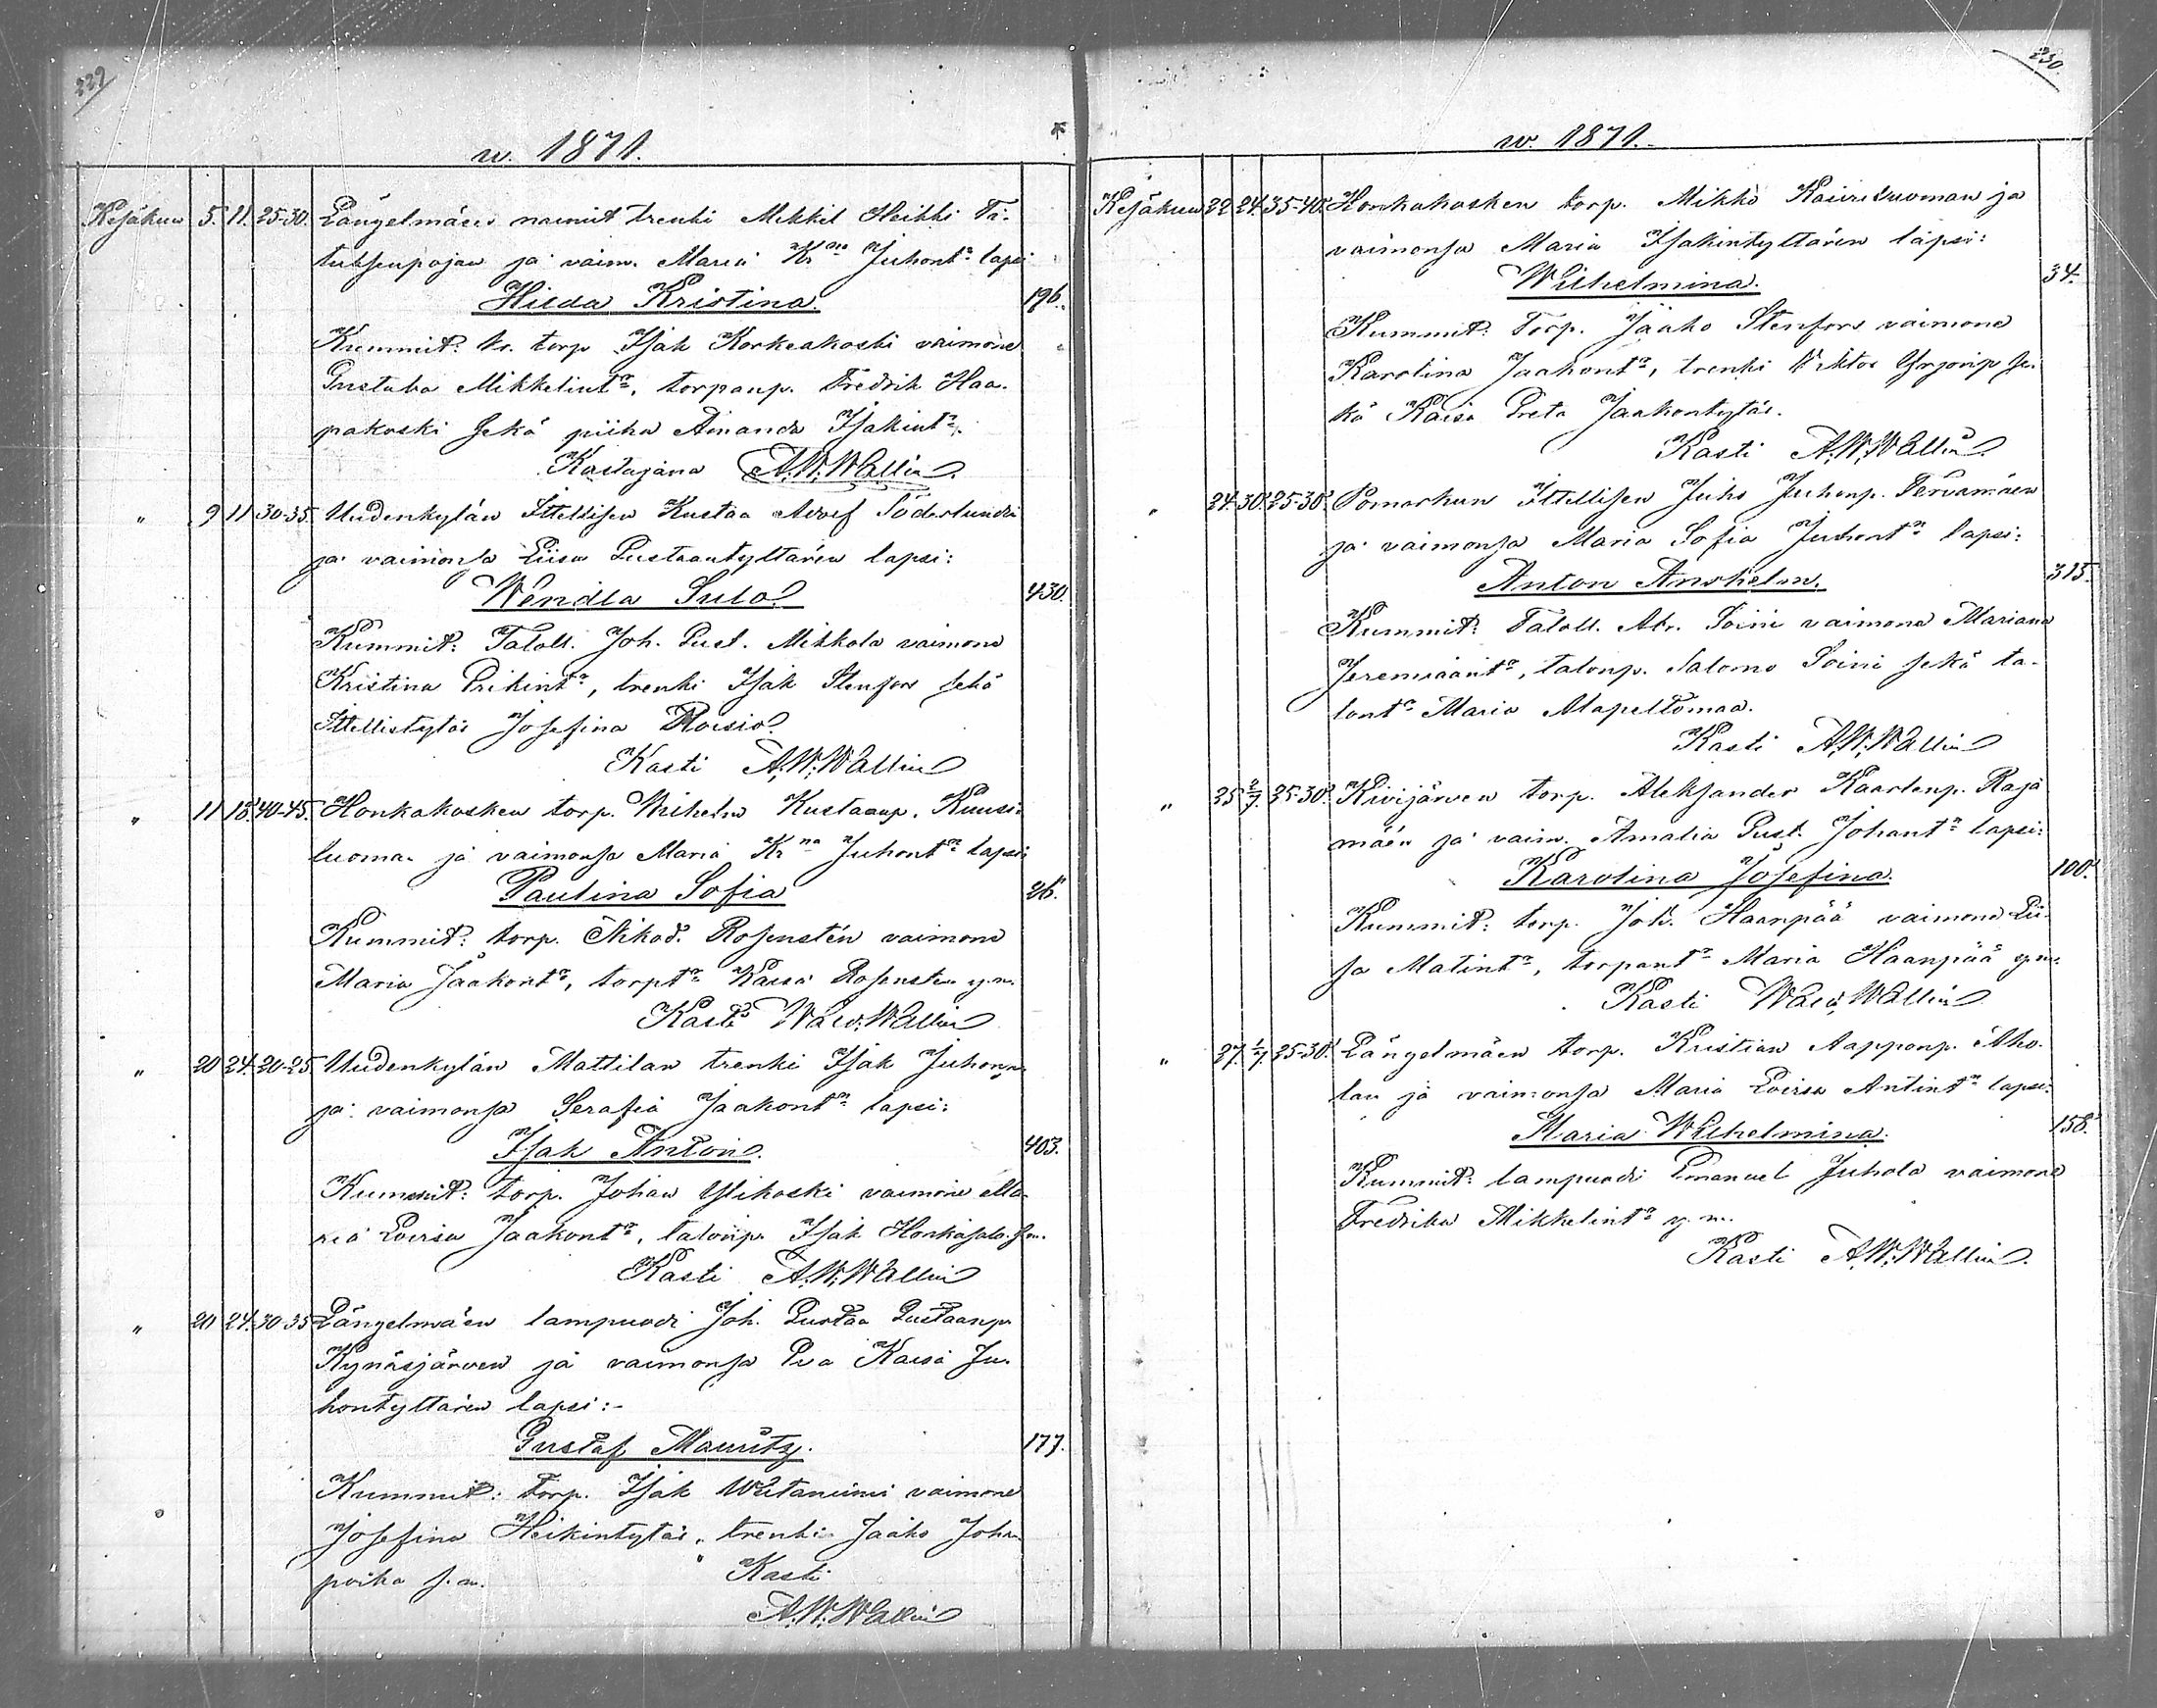 229
w. 1871.
Kesäkuu 5. 11. 25-30. Längelmäen nainut trenki Mikkil Heikki
ja vaim. Maria Kr:na Juhont:n lapsi
Hilda Kristina. 196.
Kummit: torp Isak Korkeakoski vaimone
Gustava Mikkelint:r, torpanp. Fredrik Haa-
pakoski sekä piika Amanda Isakint:r.
Kastajana A.W.Wallin.
" 9 11 30-35. Uudenkylän Ittellisen Kustaa Adolf Söderlundin
ja vaimonsa Liisa Gustaantyttären lapsi:
Wendla Sulo. 430.
Kummit: Taloll. Joh. Gust. Mikkola vaimone
Kristina Erikint:r, trenki Isak Stenfors sekä
Ittellistytär Josefina Roisio.
Kasti A.W.Wallin
" 11 18. 40-45. Honkakosken torp. Wilhelm Kustaanp. Kuusi-
luoman ja vaimonsa Maria Kr:na Juhont:n lapsi
Paulina Sofia 26.
Kummit: torp. Nikod. Rosenstén vaimone
Maria Jaakont:r, torpt:r Kaisa Rosensten y.m.
Kasti Wald.Wallin
" 20 24. 20-25 Uudenkylän Mattilan trenki Isak Juhonp.
ja vaimonsa Serafia Jaakont:n lapsi:
Isak Anton. 403.
Kummit: torp. Johan Ylikoski vaimone Ma-
ria Lovisa Jaakont:r, talonp. Isak Honkasalo y.m.
Kasti A.W.Wallin
" 20 24. 30-35 Längelmäen lampuodi Joh. Gustaa Gustaanp.
Kynäsjärven ja vaimonsa Eva Kaisa Ju-
hontyttären lapsi:-
Gustaf Mauritz. 177.
Kummit: Torp. Isak Wiitaniemi vaimone
Josefina Heikintytär, trenki Jaako Johan
poika y.m. Kasti
A.W.Wallin
230.
w. 1871.
Kesäkuu 22. 24. 35-40. Honkakosken torp. Mikko Kaivoluoman ja
vaimonsa Maria Isakintyttären lapsi:
Wilhelmina. 34.
Kummit: Torp. Jaako Stenfors vaimone
Karolina Jaakont:r, trenki Viktor Yrjönp. se-
kä Kaisa Greta Jaakontytär.
Kasti A.W.Wallin.
" 24. 30. 25-30. Pomarkun Ittellisen Juho Juhonp. Tervamäen
ja vaimonsa Maria Sofia Juhont:n lapsi:
Anton Anshelm. 315.
Kummit: Taloll. Abr. Soini vaimone Mariana
Jeremiaant:r, talonp. Salomo Soini sekä ta-
lont:r Maria Alapeltomaa.
Kasti A.W.Wallin
" 25 2/7. 25-30. Kivijärven torp. Aleksander Kaarlenp. Raja
mäen ja vaim. Amalia Gust. Johant:n lapsi:
Karolina Josefina. 100.
Kummit: torp. Joh. Haanpää vaimone Lii-
sa Matint:r, torpant:r Maria Haanpää y.m.
Kasti Wald.Wallin
" 27. 1/7. 25-30. Längelmäen torp. Kristian Aapponp. Aho-
lan ja vaimonsa Maria Lovisa Antint:n lapsi:
Maria Wilhelmina. 158.
Kummit: lampuodi Emanuel Juhola vaimone
Fredrika Mikkelint:r y.m.
Kasti A.W.Wallin.